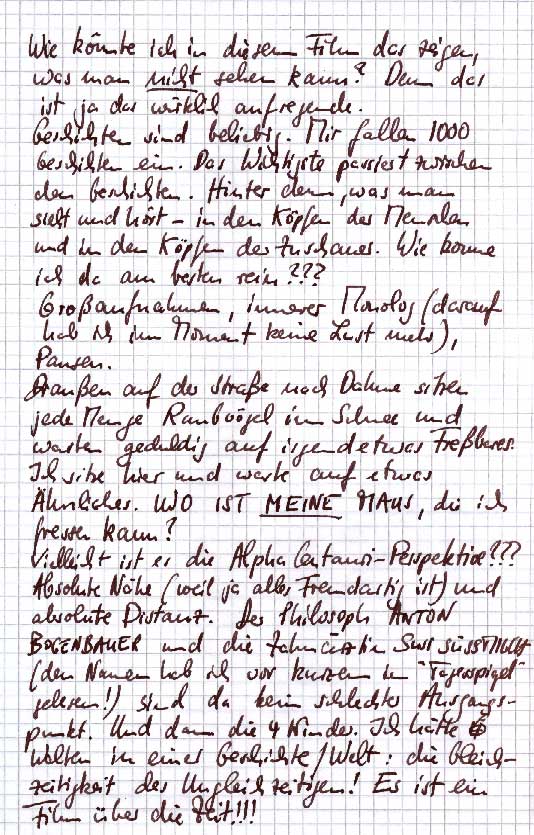 Wie könnte ich in diesem Film das zeigen,
was man nicht sehen kann? Denn das
ist ja das wirklich aufregende.
Geschichten sind beliebig. Mir fallen 1000
Geschichten ein. Das Wichtigste passiert zwischen
den Geschichten. Hinter dem, was man
sieht und hört – in den Köpfen der Menschen
und in den Köpfen der Zuschauer. Wie komme
ich da am besten rein???
Großaufnahmen, innerer Monolog (darauf
hab ich im Moment keine Lust mehr),
Pausen.
Draußen auf der Straße nach Dahme sitzen
jede Menge Raubvögel im Schnee und
warten geduldig auf irgendetwas Freßbares.
Ich sitze hier und warte auf etwas
Ähnliches. WO IST MEINE MAUS, die ich
fressen kann?
Vielleicht ist es die Alpha Centauri-Perspektive???
Absolute Nähe (weil ja alles Fremdartig ist) und
absolute Distanz. Der Philosoph ANTON
BOGENBAUER und die Zahnärztin Susi SÜSSMILCH
(den Namen hab ich vor kurzem im "Tagesspiegel"
gelesen!) sind da kein schlechter Ausgangs-
punkt. Und dann die 4 Kinder. Ich hätte 6
Welten in einer Geschichte/Welt: die Gleich-
zeitigkeit des Ungleichzeitigen! Es ist ein
Film über die Zeit!!!